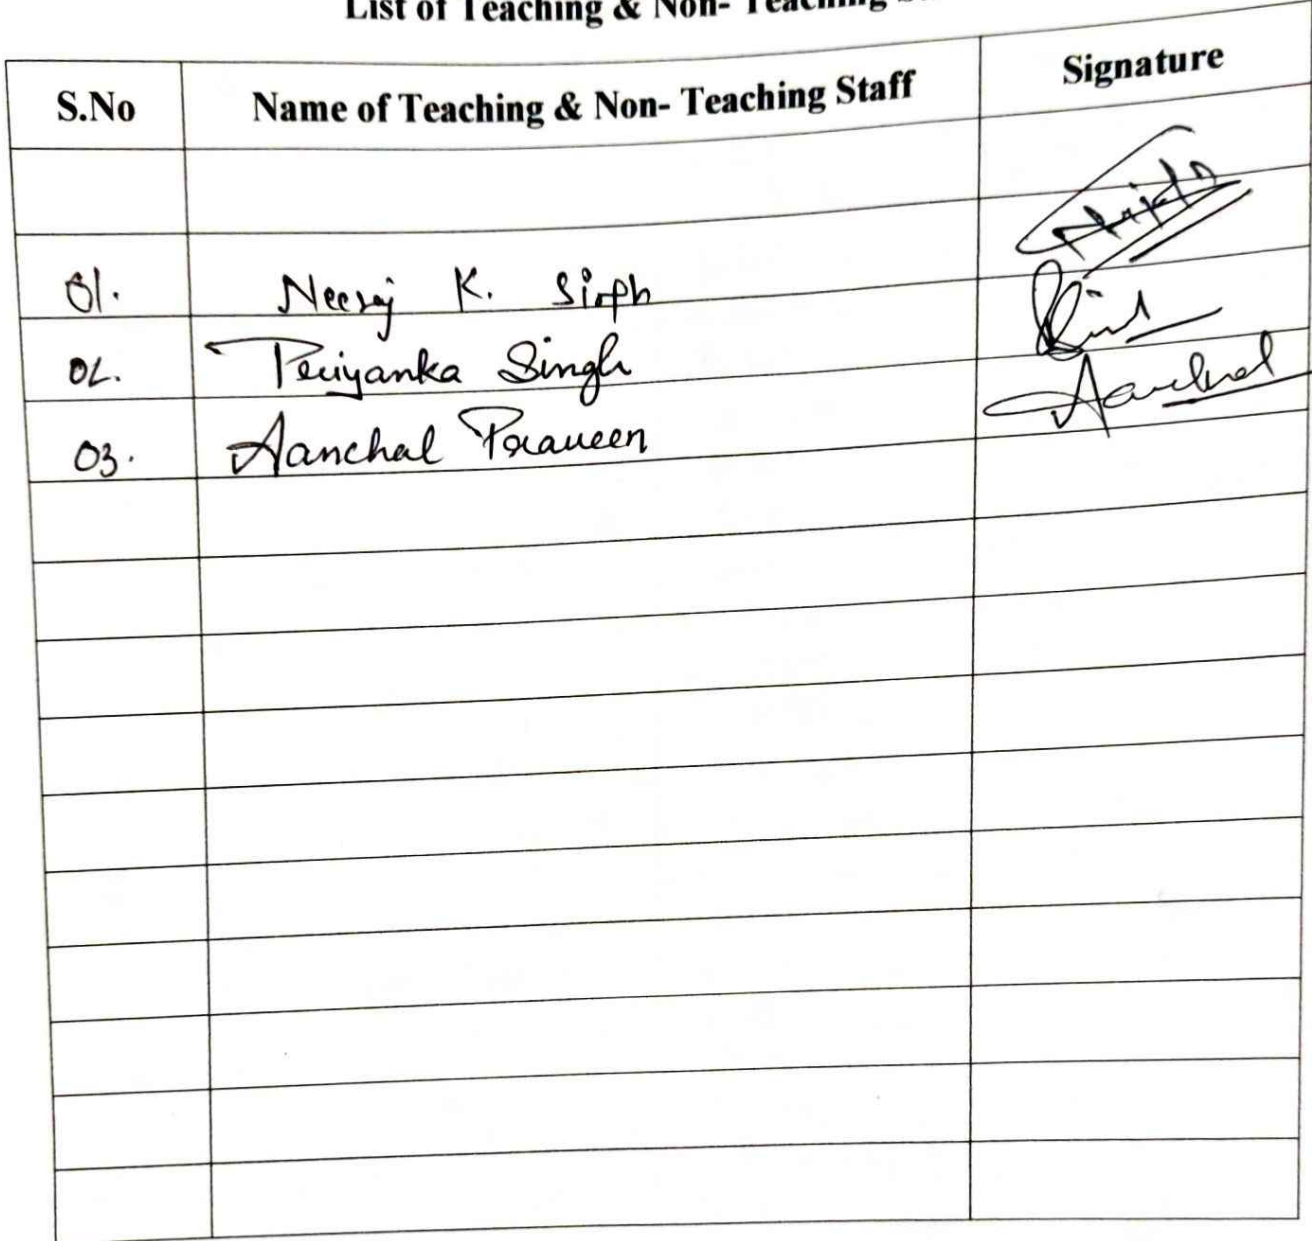 List of Teaching & Non- Teaching
S.No Name of Teaching & Non- Teaching Staff Signature
01. Neeraj K. Singh
02. Priyanka Singh
03. Aanchal Praveen Aanchal